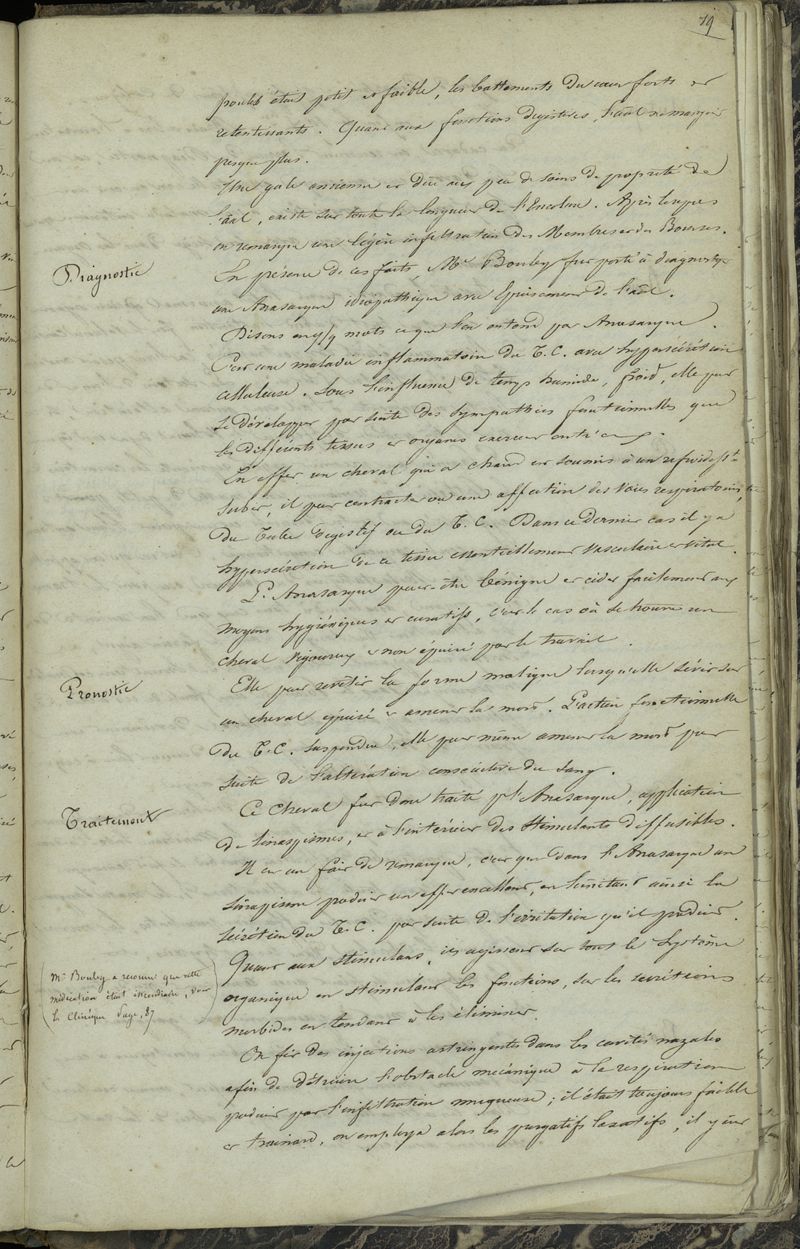 19
pouls était petit et faible, les battements du cœur forts et
retentissants. Quant aux fonctions digestives, l'aāl ne mangeait
presque plus.
Une gale ancienne et due au peu de soins de propreté de
l'aāl, existe sur toute la longueur de l'Encolure. Après
on remarque une légère infiltration des Membres et des Bourses.
Diagnostic
En présence de ces faits, Mr Bouley fut porté à diagnostiquer
une Anasarque idiopathique avec Epuisement de l'aāl.
Disons en qq mots ce que l'on entend par Anasarque.
C'est une maladie inflammatoire du T.C. avec hypersécrétion
celluleuse. Sous l'influence de temps humide, froid, elle peut
se développer par suite des sympathies fonctionnelles que
les différents tissus et organes exercent entre eux.
En effet un cheval qui a chaud est soumis à un refroidisst
subit, il peut contracter ou une affection des voies respiratoires,
du Tube digestif ou du T.C. Dans ce dernier cas il y a
hypersécrétion de ce tissu essentiellement vasculaire et vital.
L'Anasarque peut être bénigne et céder facilement aux
moyens hygiéniques et curatifs, c'est le cas où se trouve un
cheval vigoureux et non épuisé par le travail.
Pronostic
Elle peut revêtir la forme maligne lorsqu'elle sévit sur
un cheval épuisé et amener la mort. L'action fonctionnelle
du T.C. suspendue, elle peut même amener la mort par
suite de l'altération consécutive du sang.
Traitement
Ce cheval fut donc traité pr l'Anasarque, application
de sinapismes, et à l'intérieur des Stimulants diffusibles.
Il est un fait de remarque, c'est que dans l'Anasarque un
sinapisme produit un effet excellent, en limitant ainsi la
sécrétion du T.C. par suite de l'irritation qu'il produit.
Quant aux stimulans, ils agissent sur tout le Système
organique en stimulant les fonctions, sur les secrétions
morbides en tendant à les éliminer.
Mr Bouley a reconnu que cette
médication était incendiaire, voir
la Clinique Page, 87
On fit des injections astringentes dans les cavités nazales
afin de détruire l'obstacle mécanique à la respiration
produit par l'infiltration muqueuse; il était toujours faible
et trainard, on employa alors les purgatifs laxatifs, il y eut